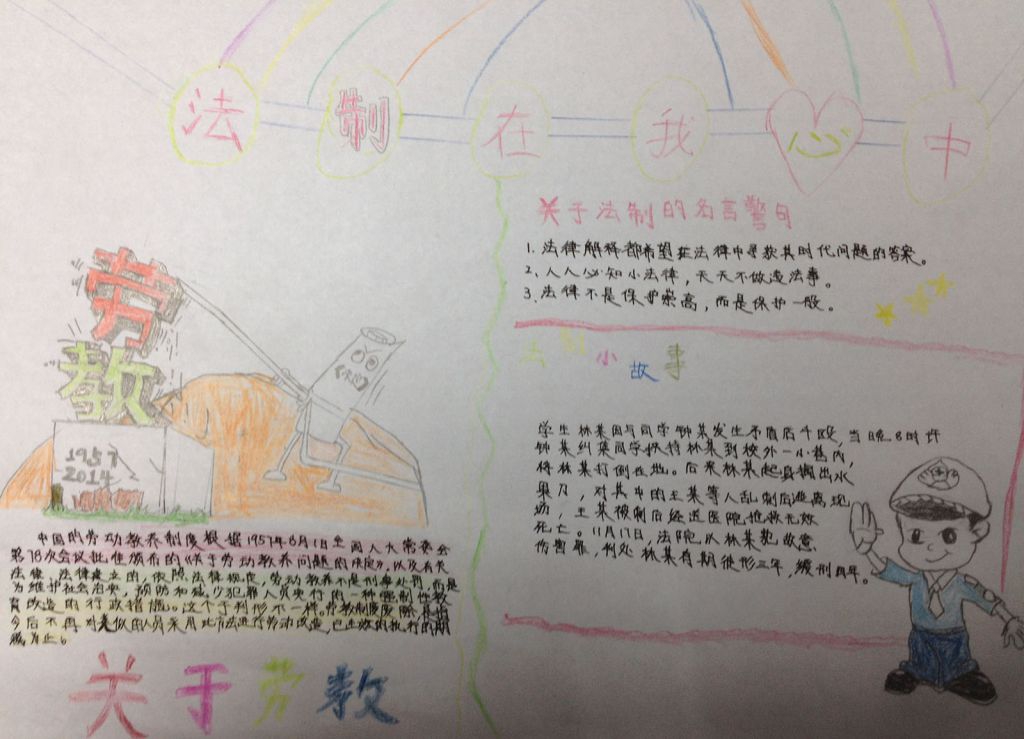 法制在我心中
劳
教
1957
2014
中国的劳动教养制度根据1957年8月1日全国人大常委会
第78次会议批准颁布的《关于劳动教养问题的决定》,以及有关
法律、法律建立的,依照法律规定,劳动教养不是刑事处罚,而是
为维护社会治安,预防和减少犯罪人员实行的一种强制性教
育改造的行政措施。这个于判刑不一样,劳教制度废除
今后不再对类似的人员采用此方法进行劳动改造,已生效的执行的期
关于劳教
关于法制的名言警句
1. 法律解释都希望在法律中寻求其时代问题的答案。
2、人人必知小法律,天天不做违法事。
3、法律不是保护崇高,而是保护一般。
小故事
学生林某因与同学钟某发生矛盾后斗殴,当晚8时许
钟某纠集同学挟持林某到校外一小巷内,
将林某打倒在地。后来林某起身掏出水
果刀,对其中的王某等人乱刺后逃离现
场,王某被刺后经送医院抢救无效
死亡。11月17日,法院以林某犯故意
伤害罪,判处林某有期徒刑三年,缓刑四年。